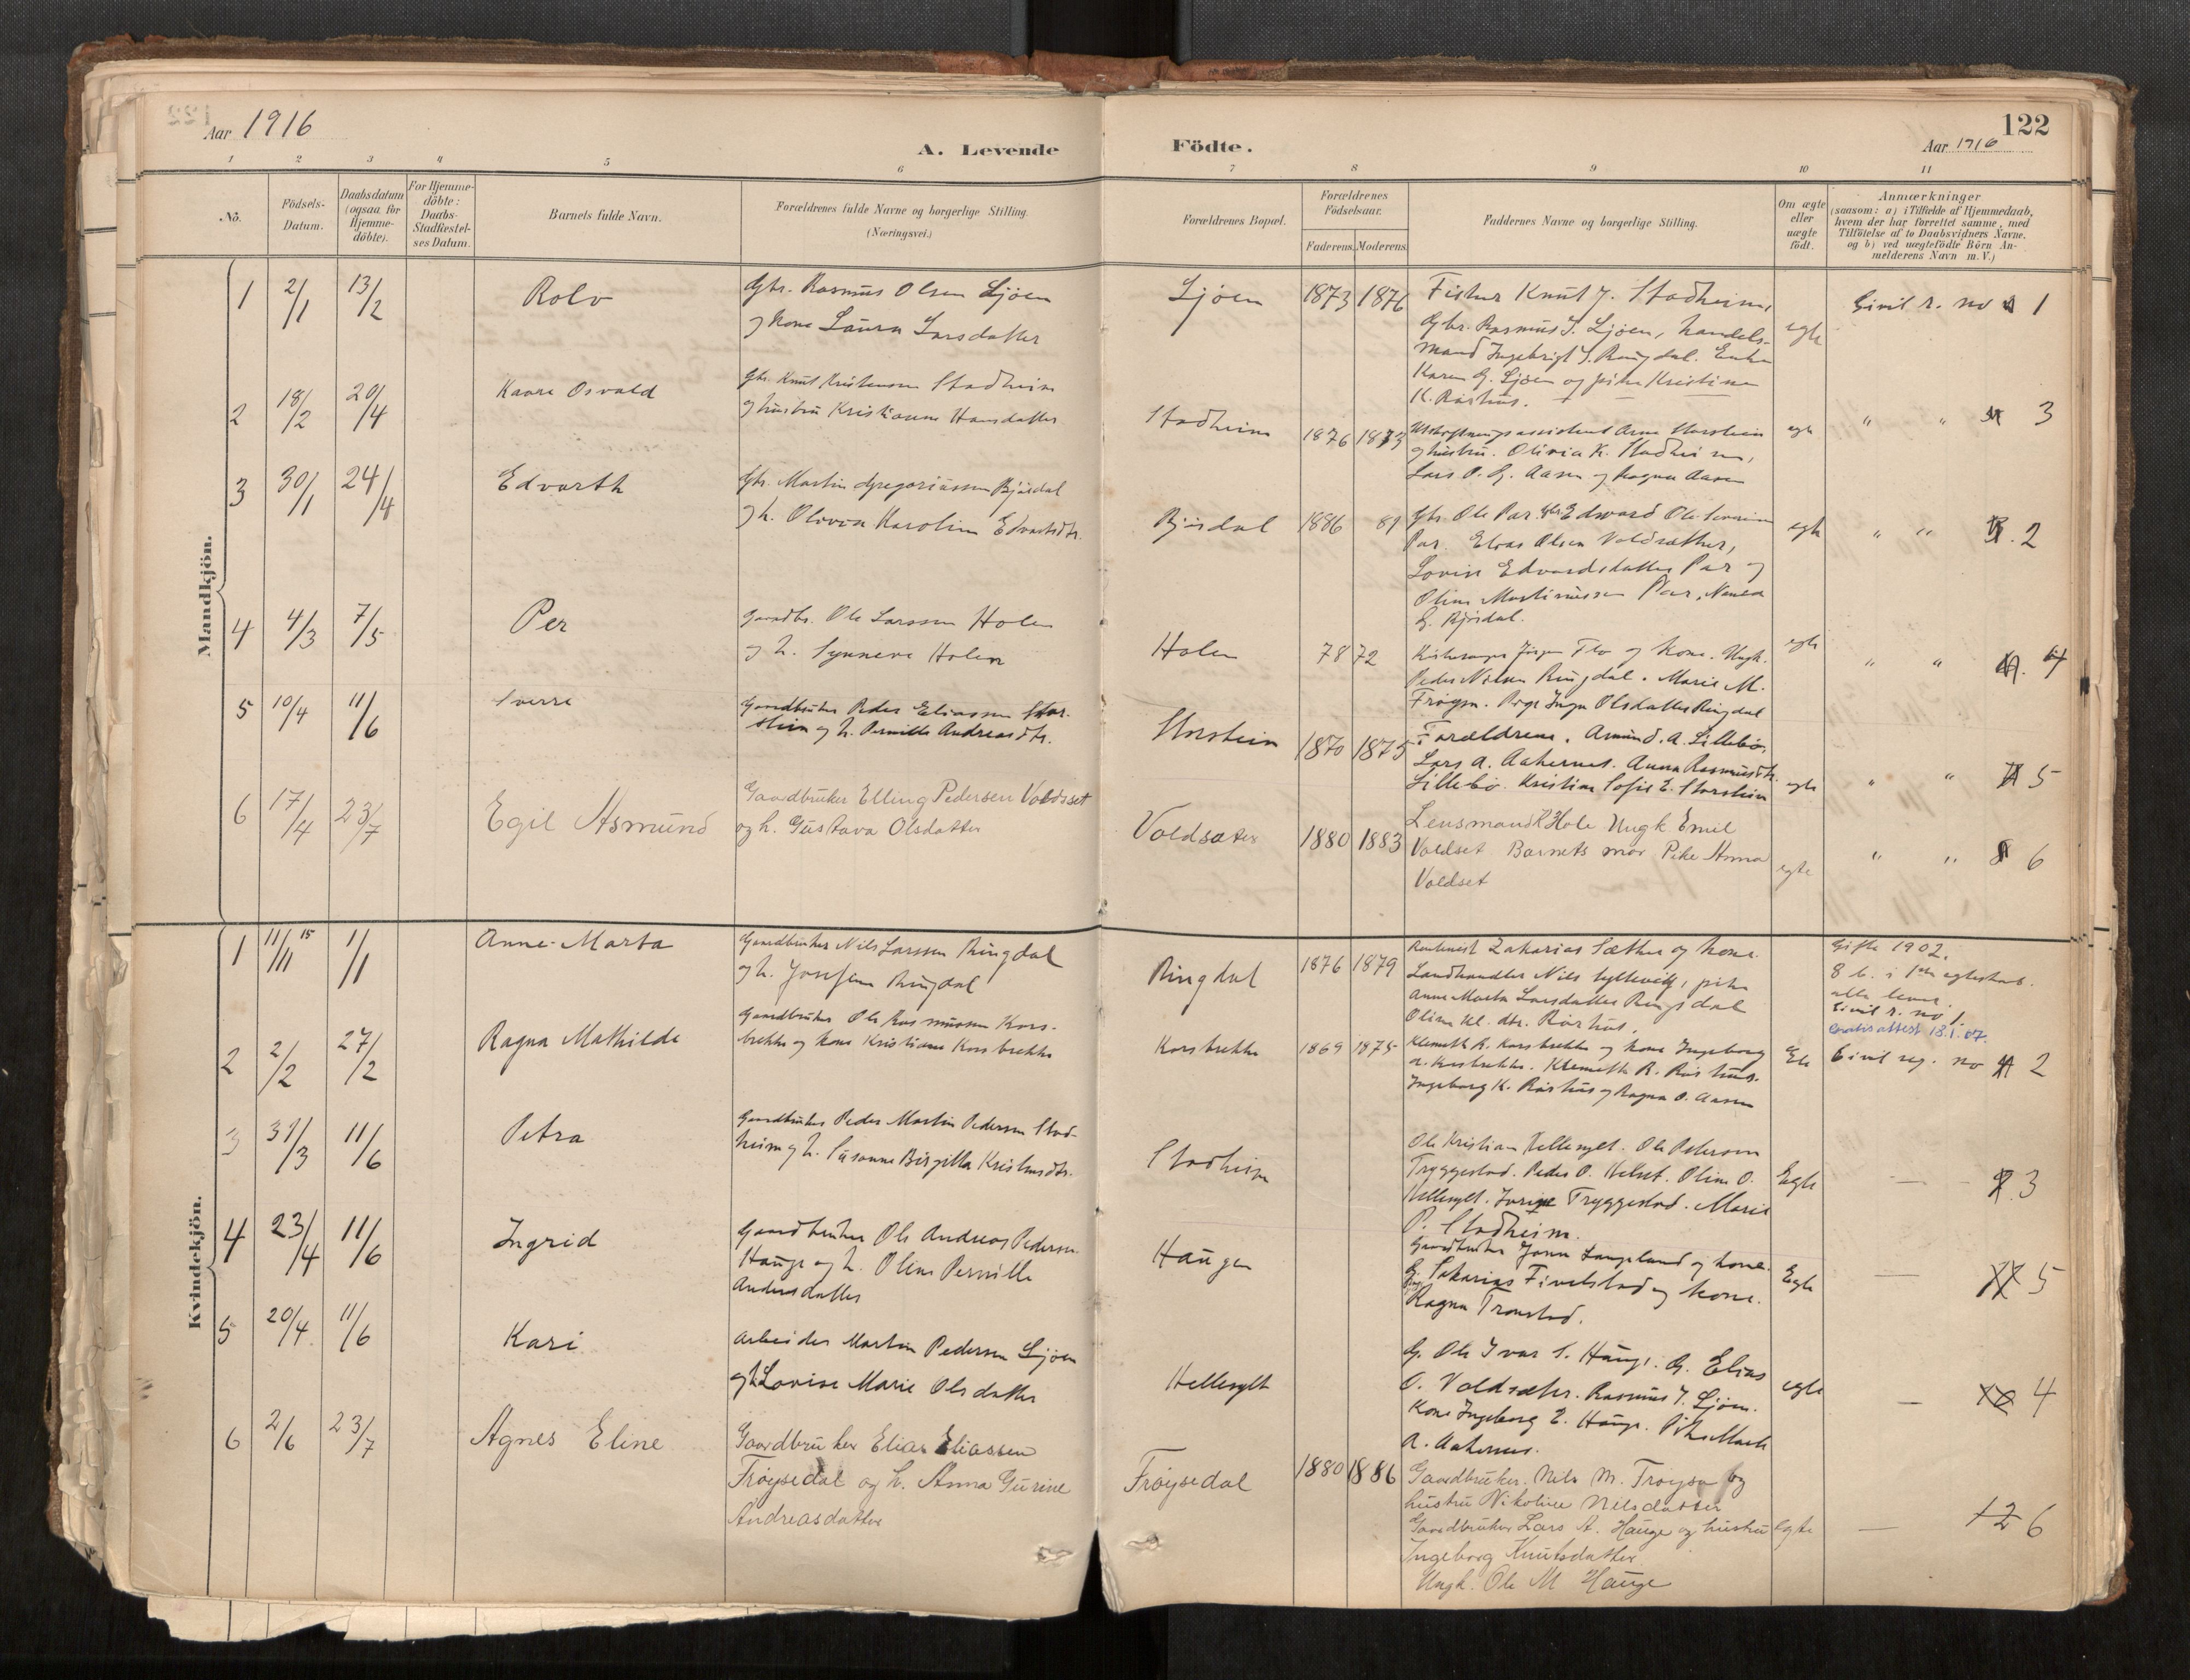 Aar 1916
A. Levende
Födte.
122
Aar 1916
1 2 3 4 5 6 7 8 9 10 11
No.
Födsels-
Datum.
Daabsdatum
(ogsaa for
Hjemme-
döbte).
For Hjemme-
döbte:
Daabs-
Stadfæstel-
ses Datum.
Barnets fulde Navn.
Forældrenes fulde Navne og borgerlige Stilling.
(Næringsvei.)
Forældrenes Bopæl.
Forældrenes
Födselsaar.
Faderens. Moderens.
Faddernes Navne og borgerlige Stilling.
Om ægte
eller
uægte
födt.
Anmærkninger
(saasom: a) i Tilfælde af Hjemmedaab,
hvem der har forrettet samme, med
Tilföielse af to Daabsvidners Navne,
og b) ved uægtefödte Börn An-
melderens Navn m. V.)
Mandkjön.
1 2/1 13/2 Rolv
Gbr. Rasmus Olsen Ljöen
og kone Laura Larsdatter
Ljöen 1873 1876
Fisker Knut J. Stadheim,
Gbr. Rasmus J. Ljöen, handels-
mand Ingebrigt S. Ringdal. Enke
Karen G. Ljöen og pike Kristine
K. Røshus.
egte
Civil r. no 1
2 18/2 20/4 Kaare Osvald
Gbr. Knut Kristensen Stadheim
og hustru Kristianne Hansdatter
Stadheim 1876 1873
Utskiftningsassistent Arne Storstein
og hustru. Olivia K. Stadheim,
Lars P. G. Aasen og Ragna Aasen
egte
" " 3
3 30/1 24/4 Edvarth
Gbr. Martin Gregoriussen Bjørdal
og h. Olovia Karoline Edvartsdtr.
Bjørdal 1886 89
Gbr. Ole Par. Gbr Edward Ole Severin
Par. Elias Olsen Voldsæther,
Lovise Edvardsdatter Par og
Oline Martinussen Par,
G. Bjørdal.
egte
" " 2
4 4/3 7/5 Per
Gaardbr. Ole Larssen Holen
og h. Synneve Holen
Holen 78 72
Kirkesanger Jörgen Flo og kone. Ungk.
Peder Nilsen Ringdal. Marie M.
Frøysa. Pige Inga Olsdatter Ringdal
egte
" " 4
5 10/4 11/6 Sverre
Gaardbruker Peder Eliassen Stor-
stein og h. Pernille Andreasdtr.
Storstein 1870 1875
Forældrene. Amund. A. Lillebö.
Lars A. Aakernes. Anna Rasmusdtr.
Lillebö. Kristine Sofie E. Storstein
egte
" " 5
6 17/4 23/7 Egil Asmund
Gaardbruker Elling Pedersen Voldsset
og h. Gustava Olsdatter
Voldsæter 1880 1883
Lensmand K Hole Ungk. Emil
Voldset Barnets mor Pike Anna
Voldset
egte
" " 6
Kvindekjön.
1 11/11 15 1/1 Anne-Marta
Gaardbruker Nils Larssen Ringdal
og h. Josefine Ringdal
Ringdal 1876 1879
Zakarias Sæther og kone.
Landhandler Nils Syltevik, pike
Anne Marta Larsdatter Ringdal
Oline Kl. dtr. Røshus.
Gifte 1902.
8 b. i 1ste egteskab.
alle lever.
Civil r. no 1.
Gratis attest 18.1.07.
2 2/2 27/2 Ragna Mathilde
Gaardbruker Ole Rasmussen Kors-
brekke og kone Kristiane Korsbrekke
Korsbrekke 1869 1875
Klemeth R. Korsbrekke og kone Ingeborg
A. Korsbrekke. Klemeth R. Røshus.
Ingeborg K. Røshus og Ragna O. Aasen
Civil reg. no 2
3 31/3 11/6 Petra
Gaardbruker Peder Martin Pedersen Stad-
heim og h. Susanne Birgitta Kristensdtr.
Stadheim
Ole Kristian Hellesylt. Ole Petersen
Tryggestad. Peder O. Helset. Oline O.
Hellesylt. Jorine Tryggestad. Marie
P. Stadheim.
Egte
3
4 23/4 11/6 Ingrid
Gaardbruker Ole Andreas Pedersen
Hauge og h. Oline Pernille
Andersdatter
Haugen
Gaardbruker Jonn Langeland og kone.
G. Sakarias Fivelstad og kone.
Ragna Tronstad.
Egte
5
5 20/4 11/6 Kari
Arbeider Martin Pedersen Ljöen
og h Lovise Marie Olsdatter
Hellesylt
G. Ole Ivar S. Hauge. G. Elias
O. Voldsæter. Rasmus J. Ljöen.
Kone Ingeborg E. Hauge. Pike
A. Aakernes.
egte
4
6 2/6 23/7 Agnes Eline
Gaardbruker Elias Eliassen
Frøysedal og h. Anna Gurine
Andreasdatter
Frøysedal 1880 1886
Gaardbruker. Nils M. Frøysa og
hustru Nikoline Nilsdatter
Gaardbruker Lars A. Hauge og hustru
Ingeborg Knutsdatter
Ungk. Ole M Hauge
Egte
12 6